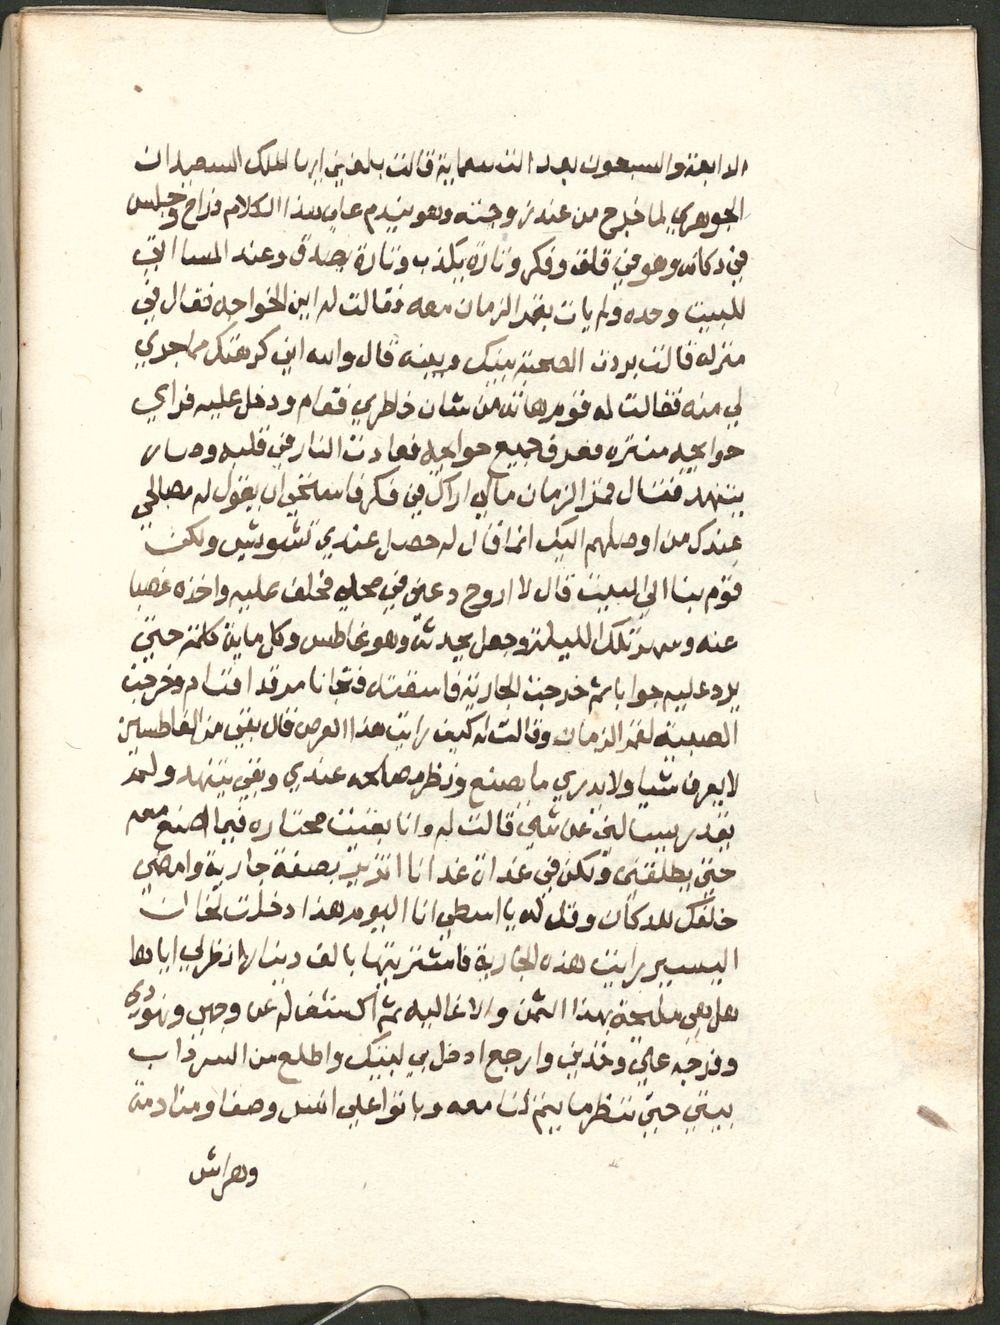 الرابعة والسبعون بعد التسعماية قالت بلغني ايها الملك السعيد ان
الجوهري لما خرج من عند زوجته وهو يندم علي هذا الكلام فراح وجلس
في دكانه وهو في قلق وفكر وتارة يكذب وتارة يصدق وعند المسا اتي
للبيت وحده ولم يات بقمر الزمان معه فقالت له اين الخواجه فقال في
منزله قالت بردت الصحبة بينك وبينه قال والله اني كرهتكم مما جري
لي منه فقالت له قوم هاته من شان خاطري فقام ودخل عليه فراي
حوايجه منتره فعرف جميع حوايجه فعادت النار في قلبه وصار
يتنهد فقال قمر الزمان مالي اراك في فكر فاستحي ان يقول له مصالحي
عندك من اوصلهم اليك انما قال له حصل عندي تشويش ولكن
قوم بنا الي البيت قال لا اروح دعني في محلي فحلف عليه واخذه غصبا
عنه وسهر تلك الليلة وجعل يحدثه وهو غاطس وكل ماية كلمة حتي
يرد عليه جوابا ثم خرجت الجارية فاسقته فنجانا مرقد افنام وخرجت
الصبية لقمر الزمان وقالت له كيف رايت هذا العرص قال بقي من الغاطسين
لا يعرف شيا ولا يدري ما يصنع ونظر مصالحه عندي وبقي يتنهد ولم
يقدر يسالني عن شي قالت له وانا بقيت محتاره فيما اصنع معه
حتي يطلقني ولكن في غدان غدانا اتزيد بصفة جارية وامضي
خلفك للدكان وقل له يا اسطي انا اليوم هذا دخلت لخان
اليسير رايت هذه الجارية فاشتريتها بالف دينار انظر لي اياها
هل هي مليحة بهذا الثمن والا غاليه ثم اكشف له عن وجهي ونهودي
وفرجه علي وخذني وارجع ادخل بي لبيتك واطلع من السرداب
بيتي حتي ننظر ما يتم لنا معه وباتوا علي انس وصفا ومنادمة
وهراش